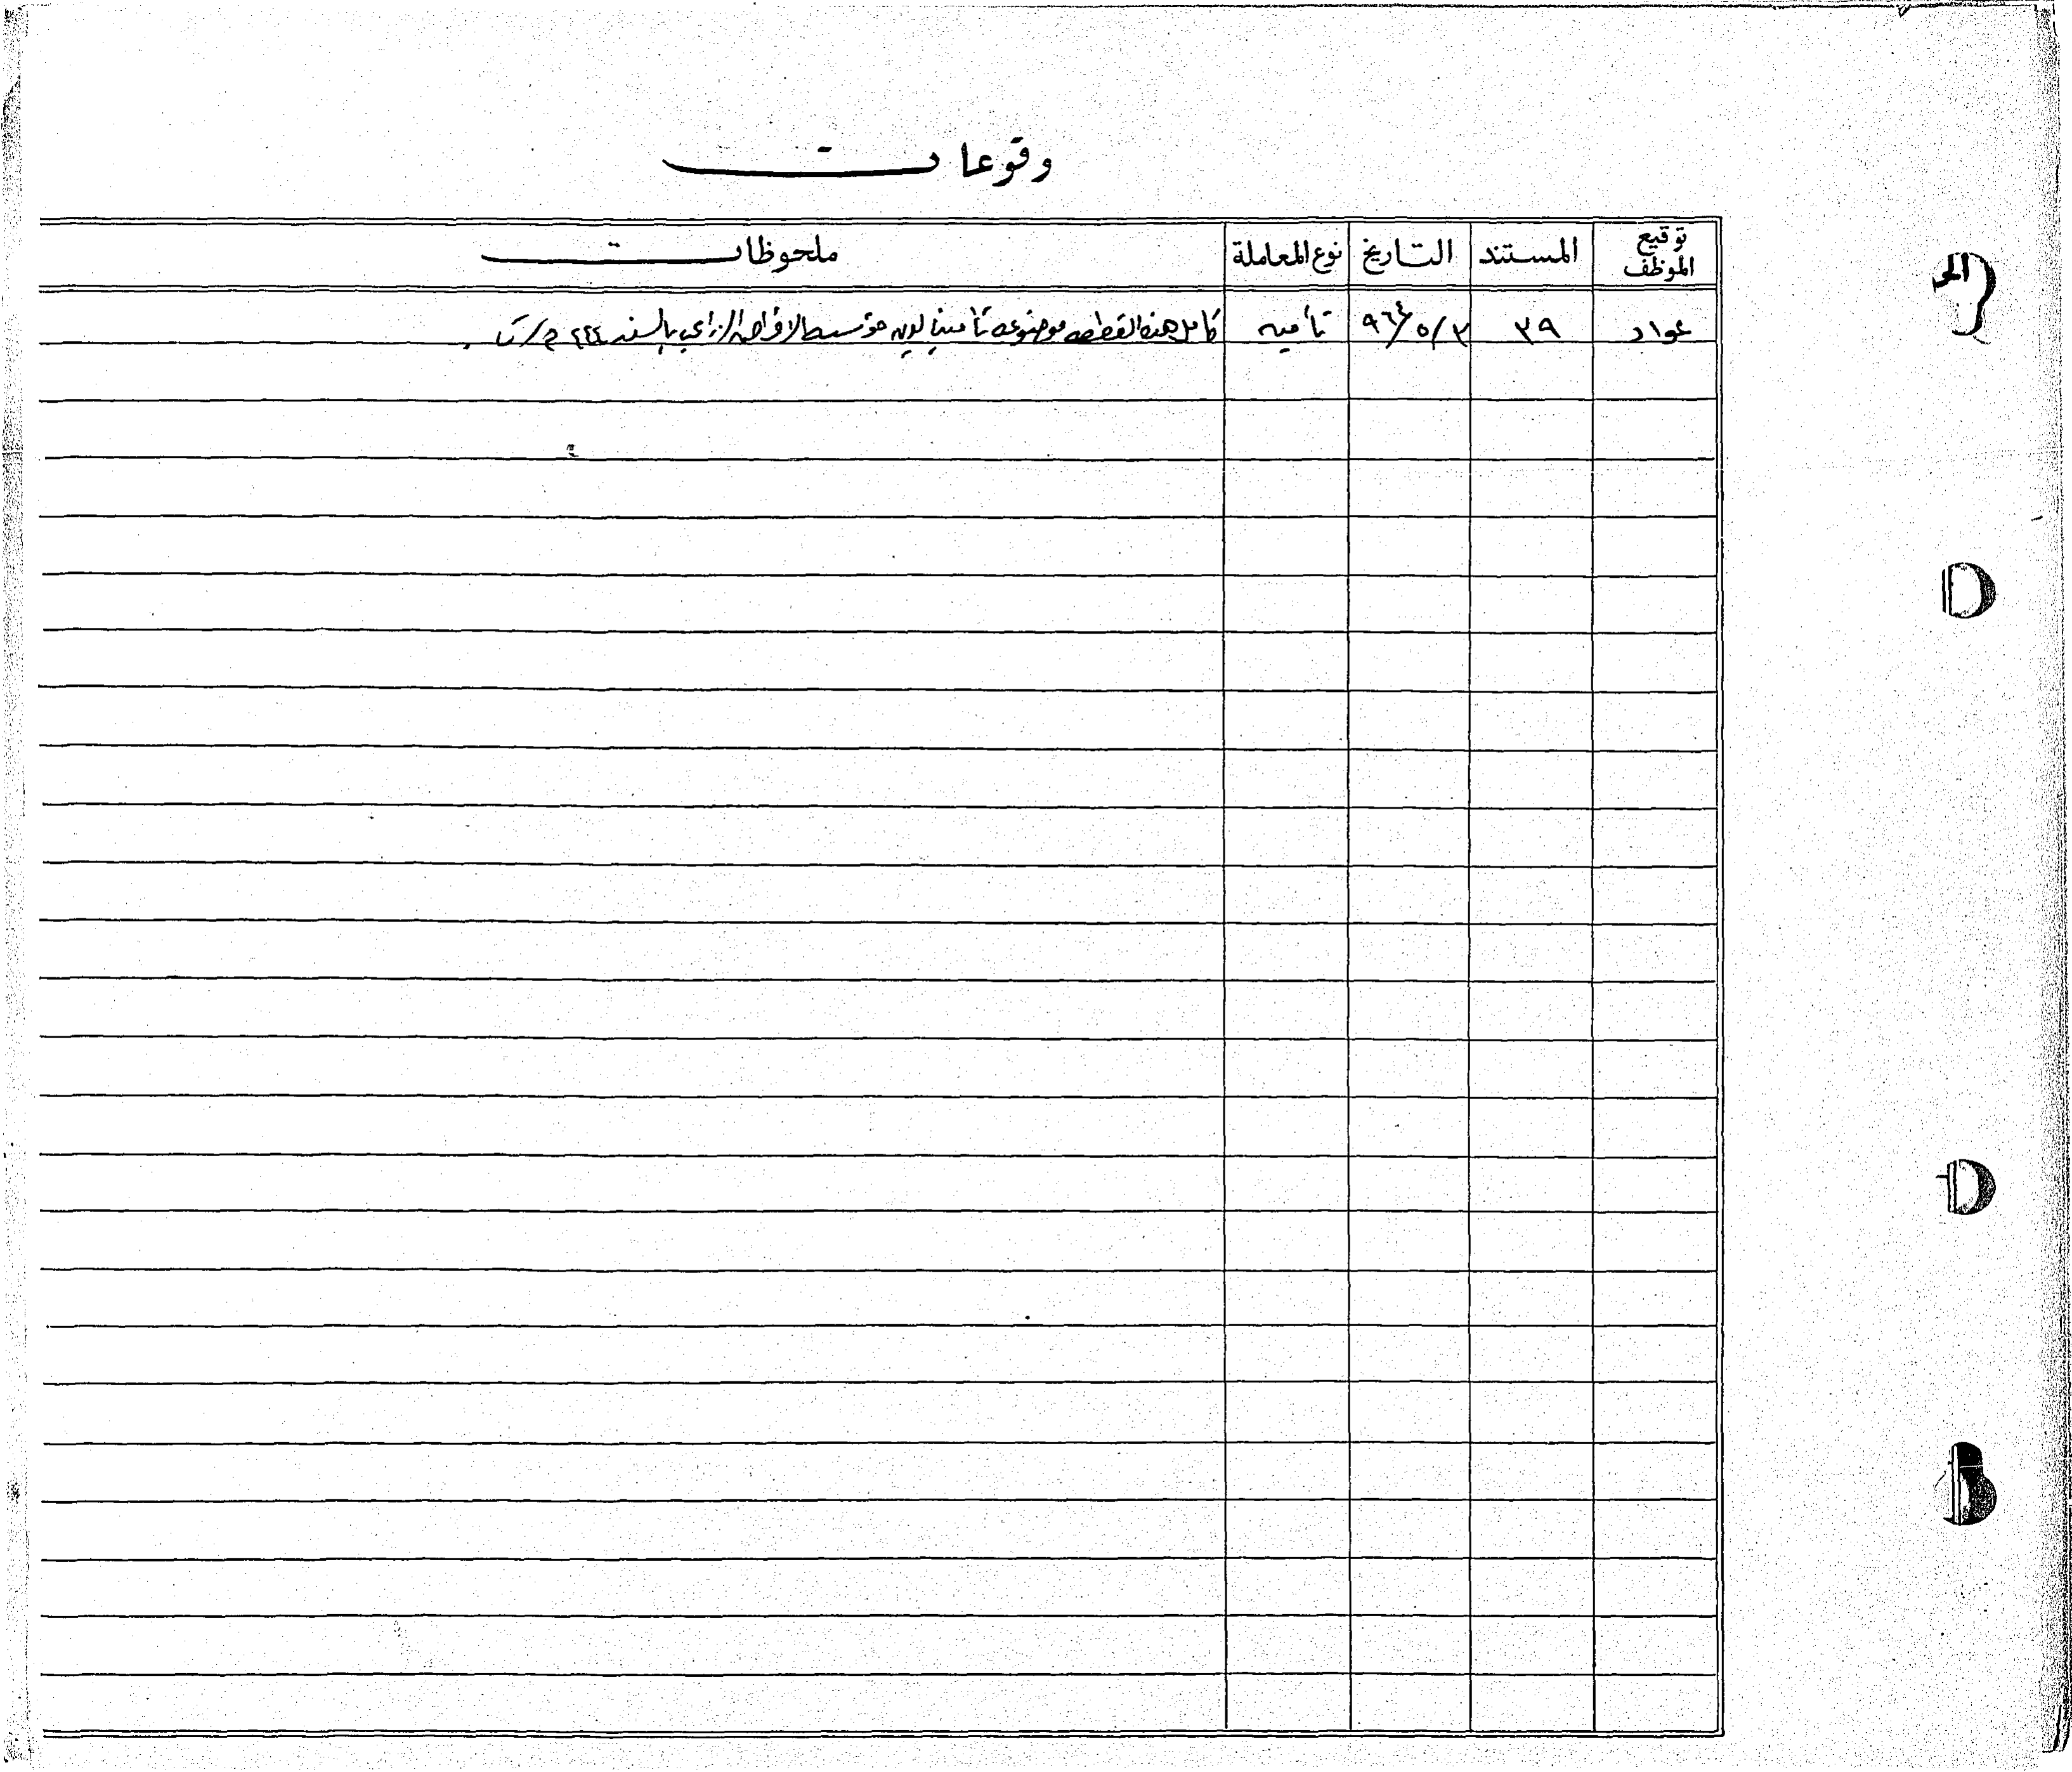 وقوعات
توقيع الموظف المستند التاريخ نوع المعاملة ملحوظات
عواد ٣٩ ٩٦٤/٥/٣ تأمين كامل هذه القطعه موضوعه تأمينا لدى مؤسسة الاقراض الزراعي بالسند